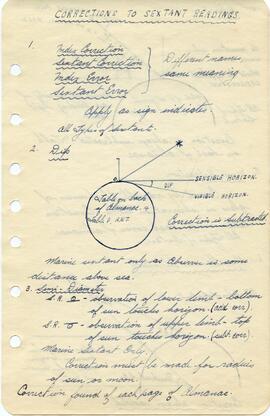 CORRECTIONS TO SEXTANT READINGS
1.
Index Correction
Sextant Correction
Index Error
Sextant Error
Different names,
same meaning
Apply as sign indicates
all types of sextant.
2. Dip
SENSIBLE HORIZON.
DIP
VISIBLE HORIZON.
Table on back
of Almanac. &
Table V. ANT
Correction is Subtracted
Marine sextant only as Observer is some
distance above sea.
3. Semi-Diameter
S.R. - obervation of lower limb - bottom
of sun touches horizon. (add corr)
S.R. - obervation of upper limb - top
of sun touches horizon. (subt. corr)
Marine Sextant Only.
Correction must be made for radius
of sun or moon.
Correction found of each page of Almanac.